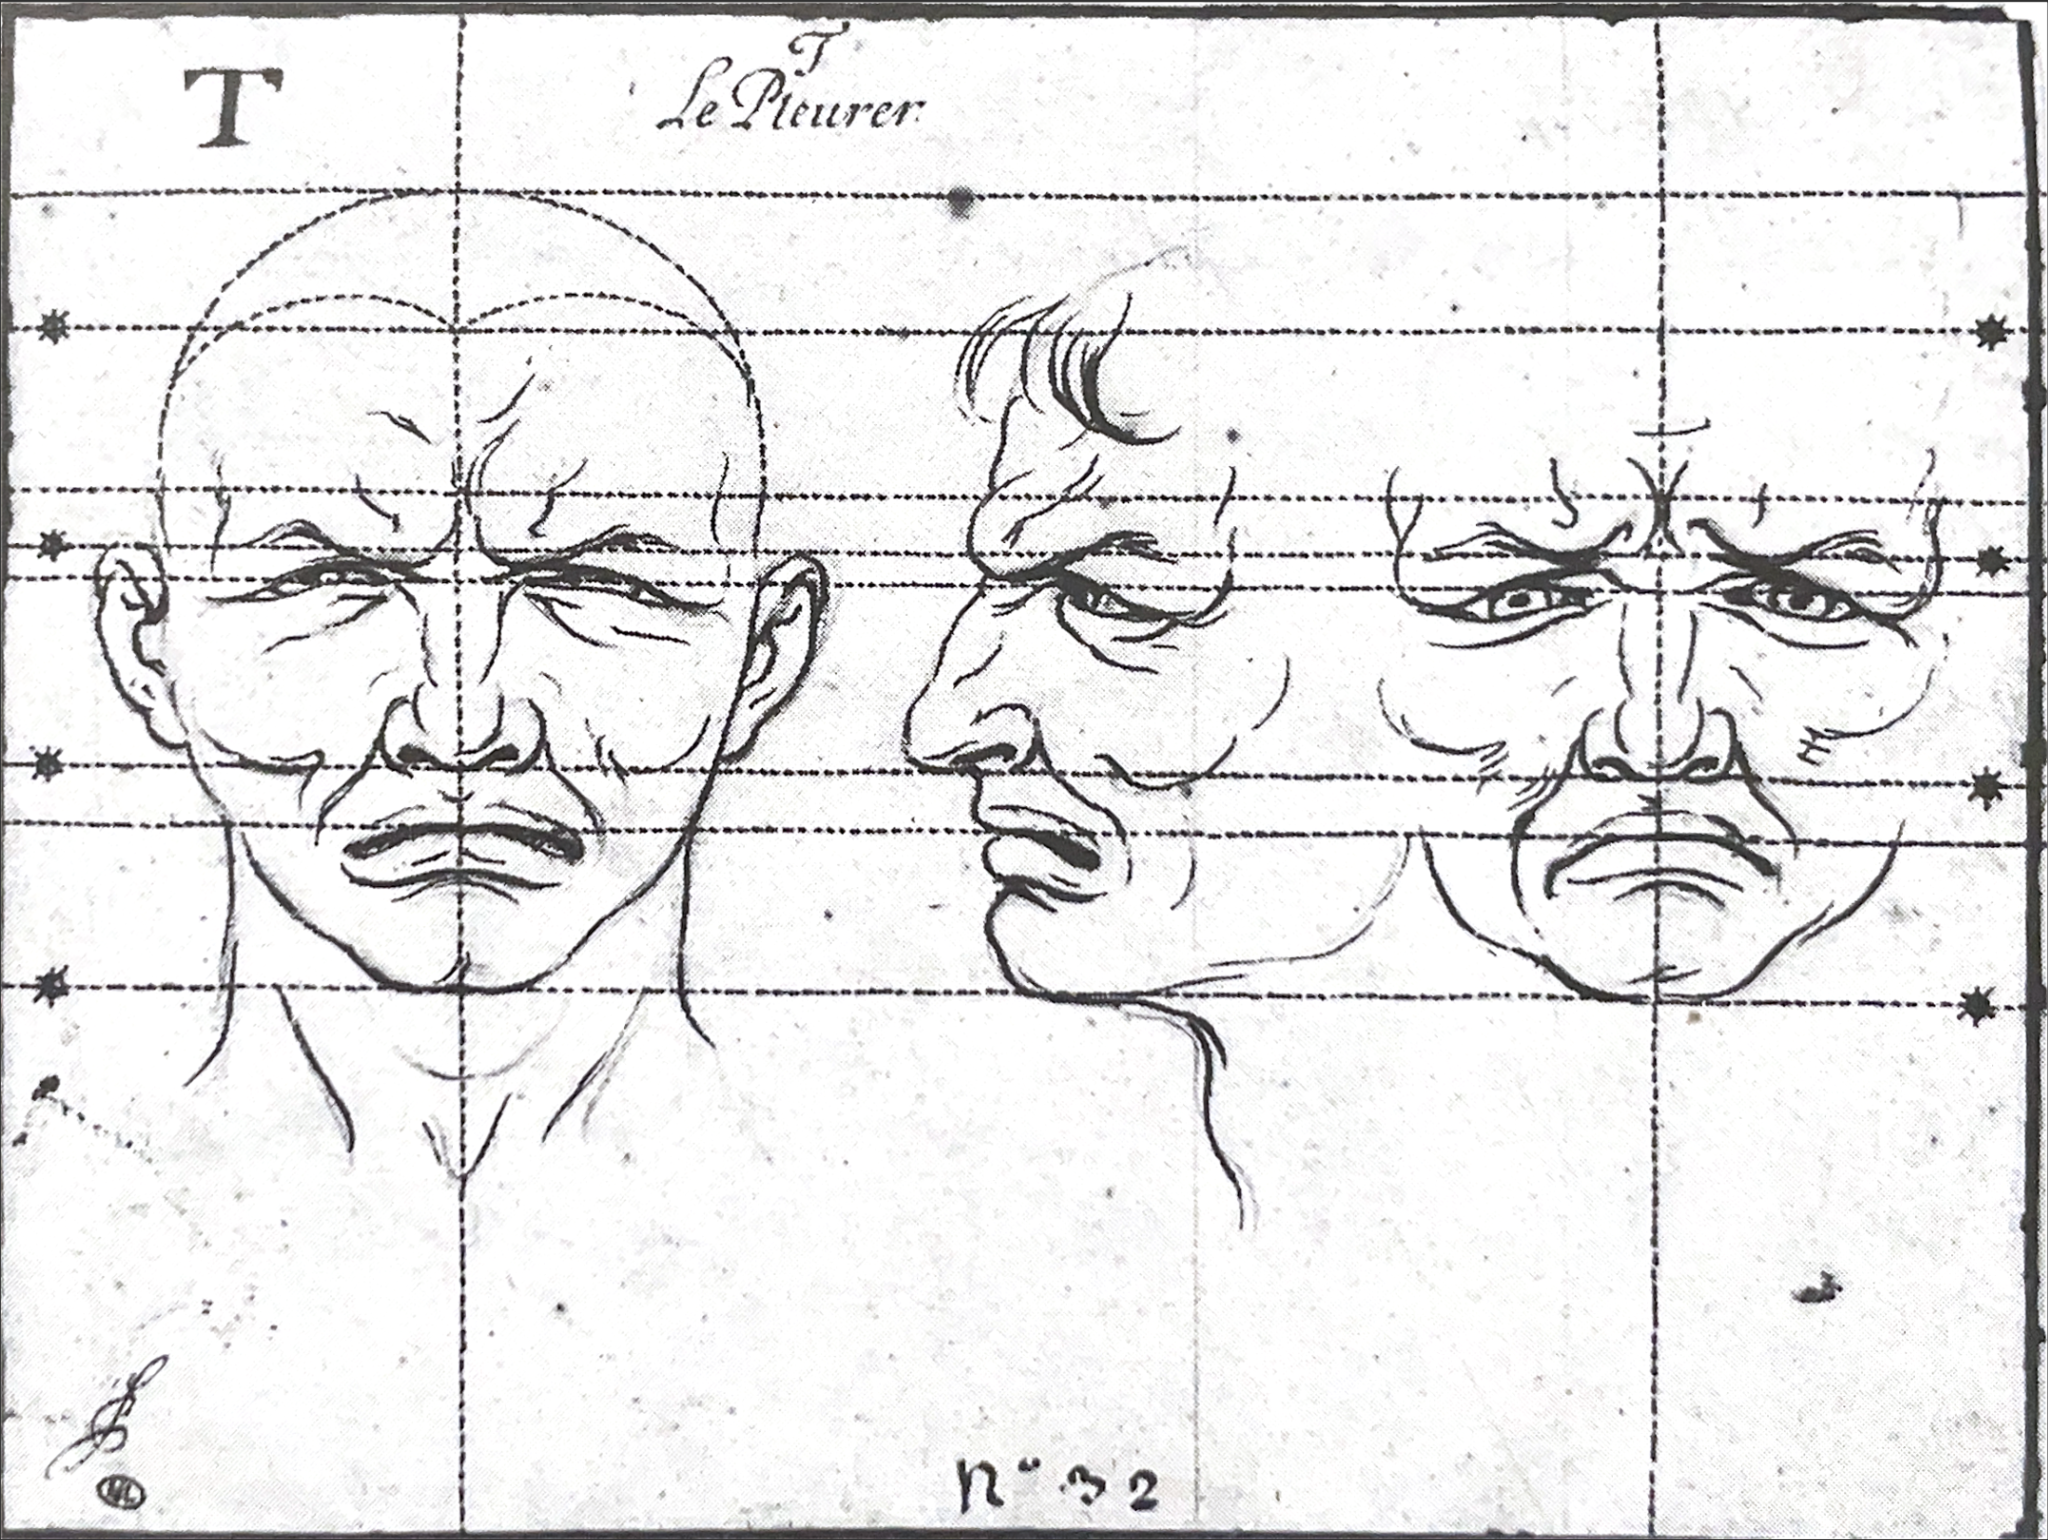 T
T
Le Pleurer.
N° 32